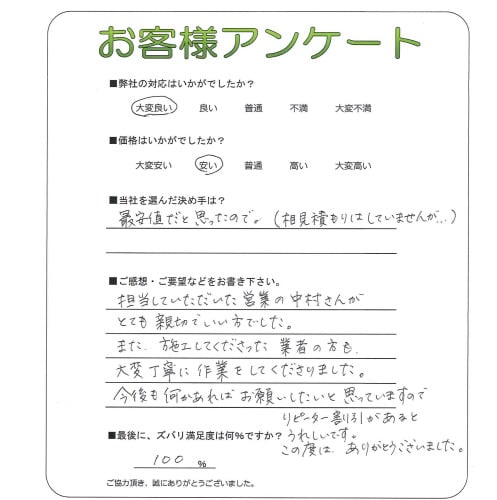 お客様アンケート
■弊社の対応はいかがでしたか？
大変良い 良い 普通 不満 大変不満
■価格はいかがでしたか？
大変安い 安い 普通 高い 大変高い
■当社を選んだ決め手は？
最安値だと思ったので。(相見積もりはしていませんが…)
■ご感想・ご要望などをお書き下さい。
担当していただいた営業の中村さんが
とても親切でいい方でした。
また、施工してくださった業者の方も、
大変丁寧に作業をしてくださりました。
今後も何かあればお願いしたいと思っていますので
リピーター割引があると
うれしいです。
この度は、ありがとうございました。
■最後に、ズバリ満足度は何%ですか？
100 %
ご協力頂き、誠にありがとうございました。